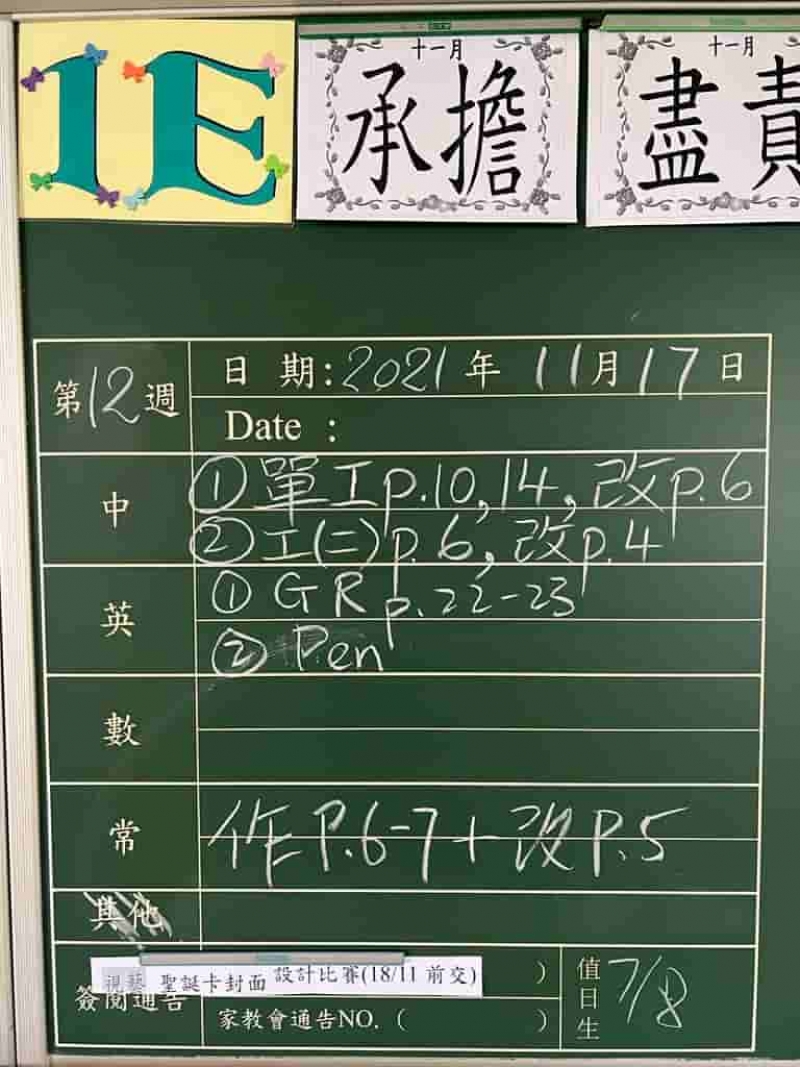 1E
十一月
承擔
十一月
盡責
第12週
日 期:2021年 11月17日
Date :
中
①單工p.10,14,改p.6
②工(二)p.6,改p.4
英
①GR p.22-23
②Pen
數
常
作P.6-7+改P.5
其他
視藝 聖誕卡封面 設計比賽(18/11 前交)
)
簽閱通告
家教會通告NO. ( )
值日生
7/8